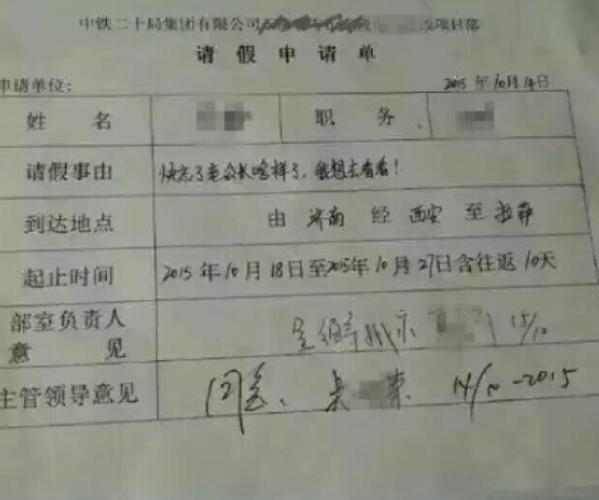 中铁二十局集团有限公司 项目部
请假申请单
申请单位: 2015年10月14日
姓名 职务
请假事由 快忘了老公长啥样了,我想去看看!
到达地点 由 济南 经 西安 至 拉萨
起止时间 2015年10月18日至2015年10月27日含往返10天
部室负责人
意见 呈 批示 15/10
主管领导意见 同意. 吴 14/10-2015